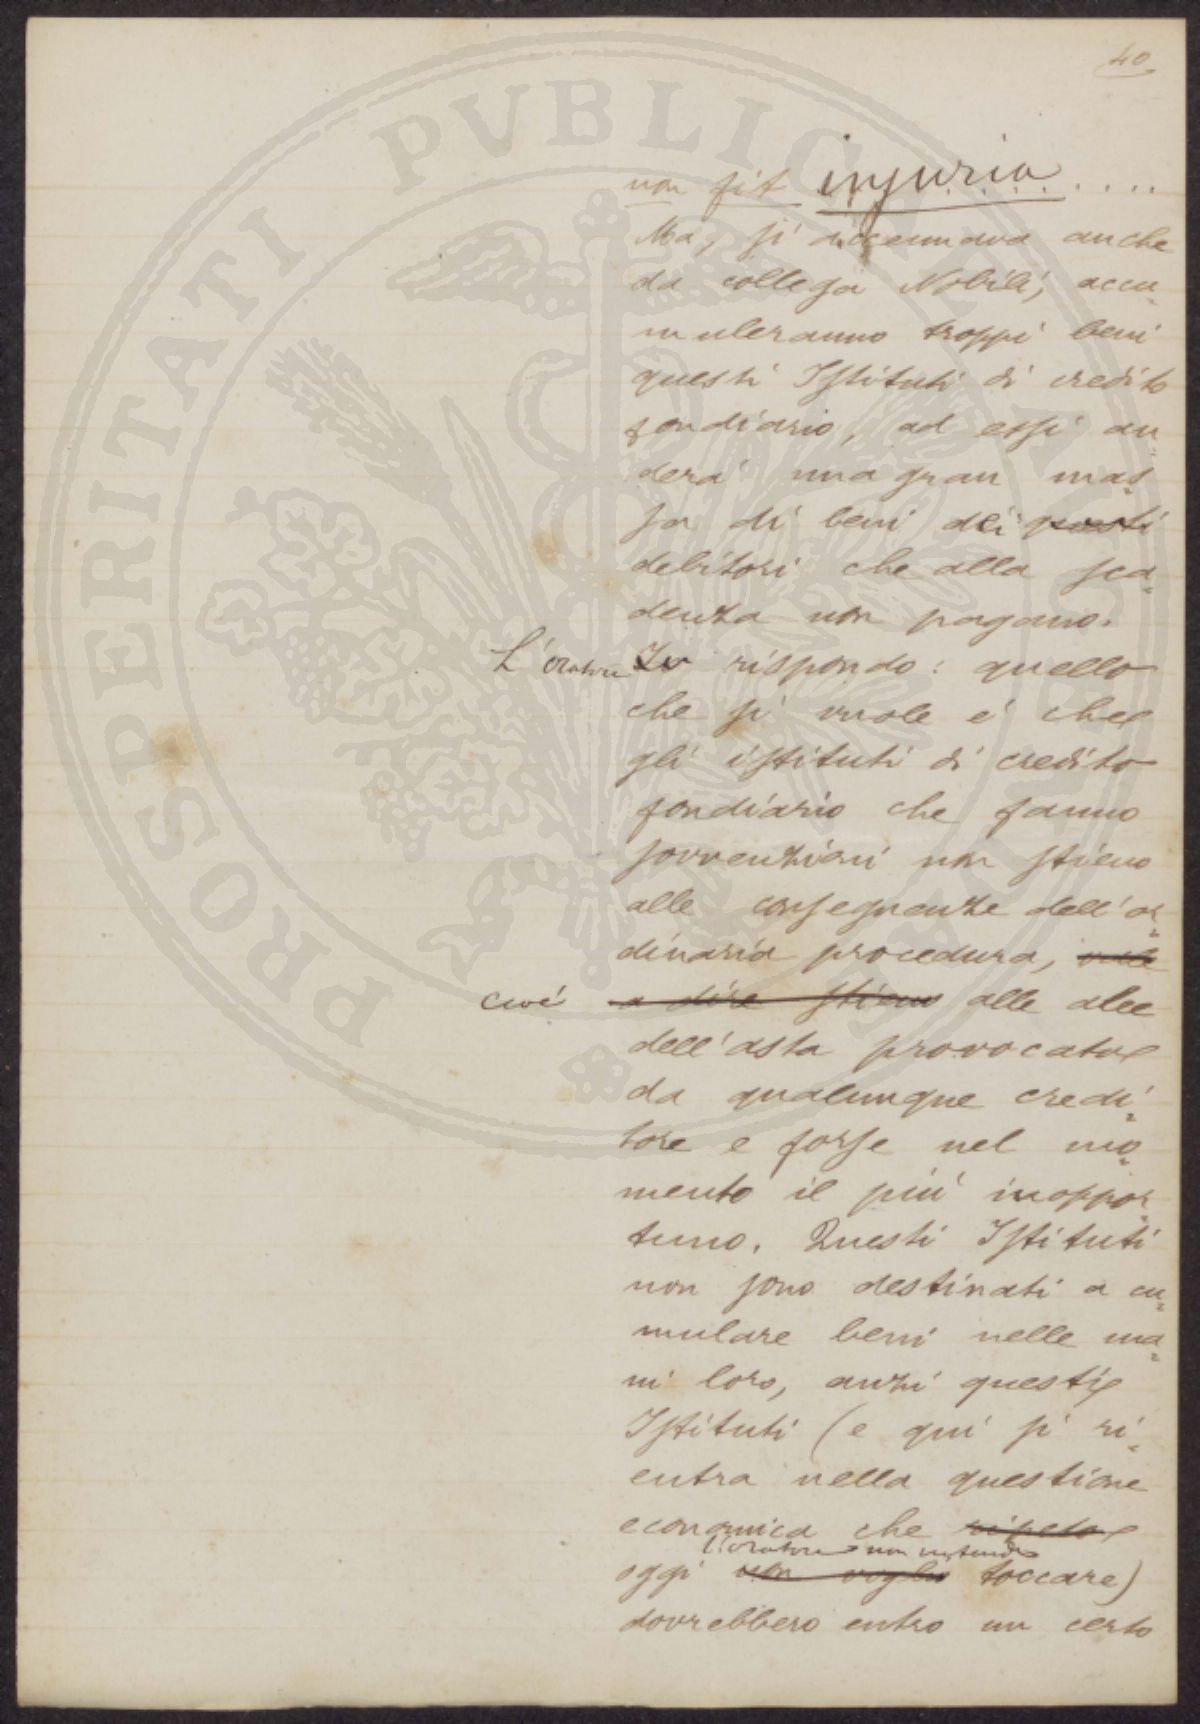 40
non fit injuria . . . .
Ma, si accennava anche
da collega Nobili, accu=
muleranno troppi beni
questi Istituti di credito
fondiario, ad essi an=
derà una gran mas=
sa di beni dei questi
debitori che alla sca=
denza non pagano.
L'oratore Io rispondo: quello
che si vuole è che
gli istituti di credito
fondiario che fanno
sovvenzioni non stieno
alle conseguenze dell'or=
dinaria procedura, vale
cioè a dire stieno alle alee
dell'asta provocata
da qualunque credi=
tore e forse nel mo=
mento il più inoppor=
tuno. Questi Istituti
non sono destinati a cu=
mulare beni nelle ma=
ni loro, anzi questi
Istituti (e qui si ri=
entra nella questione
economica che ripeto
l'oratore non intende
oggi non voglio toccare)
dovrebbero entro un certo
PROSPERITATI PVBLICAE